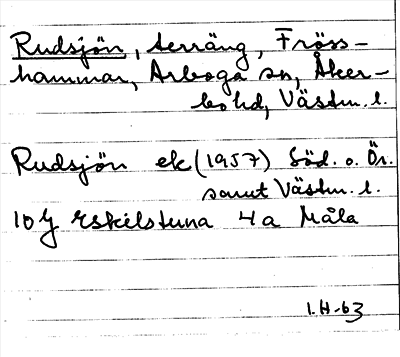 Rudsjön, terräng, Fröss-
hammar, Arboga sn, Åker-
bo hd, Västm. l.
Rudsjön ek (1957) Söd. o. Ör.
samt Västm. l.
10 G Eskilstuna 4 a Måla
I.H-63